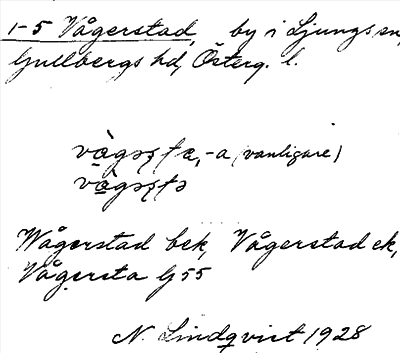 1-5 Vågerstad, by i Ljungs sn,
Gullbergs hd, Österg. l.
vàgəʂʈa, -a (vanligare)
vàgəʂʈə
Wågerstad bek, Vågerstad ek,
Vågersta G 55
N. Lindqvist 1928